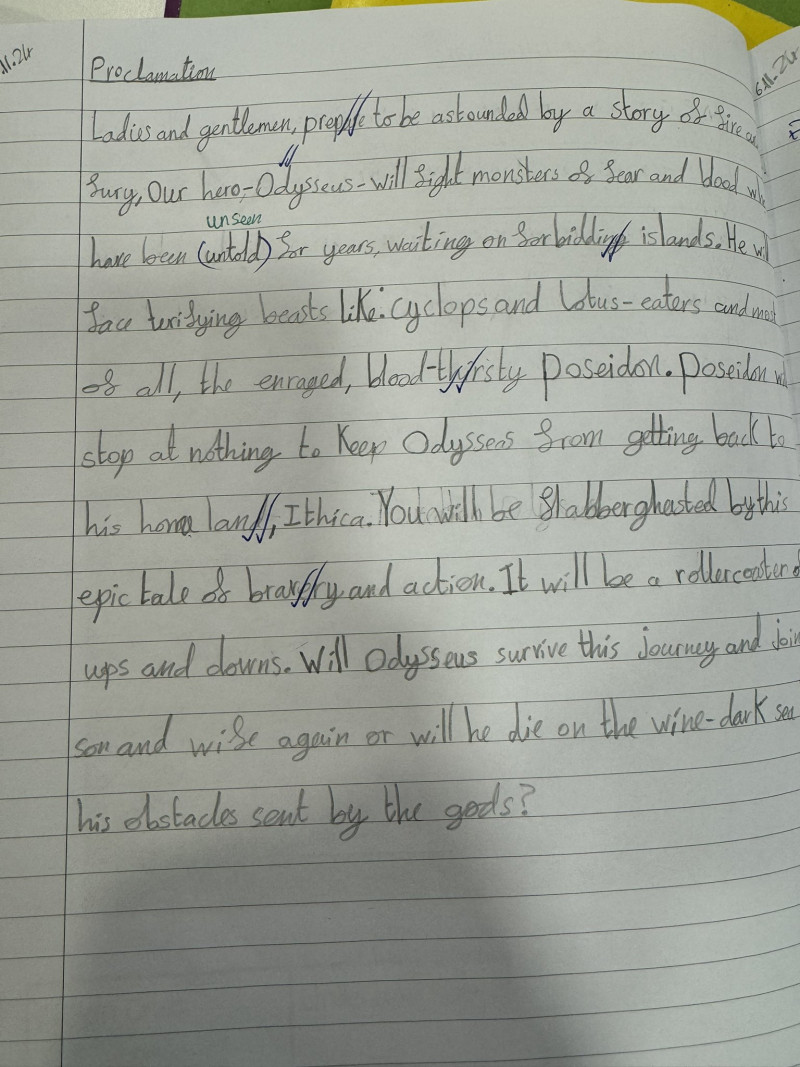 11.24
6.11.24
Proclamation
Ladies and gentlemen, prepare to be astounded by a story of fire
fury, Our hero-Odysseus-will fight monsters of fear and blood
unseen
have been (untold) for years, waiting on forbidding islands. He
face terifying beasts like: cyclops and lotus-eaters and most
of all, the enraged, blood-thyrsty poseidon. poseidon
stop at nothing to keep Odysseas from getting back to
his home land, Ithica. You will be flabberghasted by this
epic tale of bravery and action. It will be a rollercoaster of
ups and downs. Will Odysseus survive this journey and join
son and wife again or will he die on the wine-dark sea
his obstacles sent by the gods?